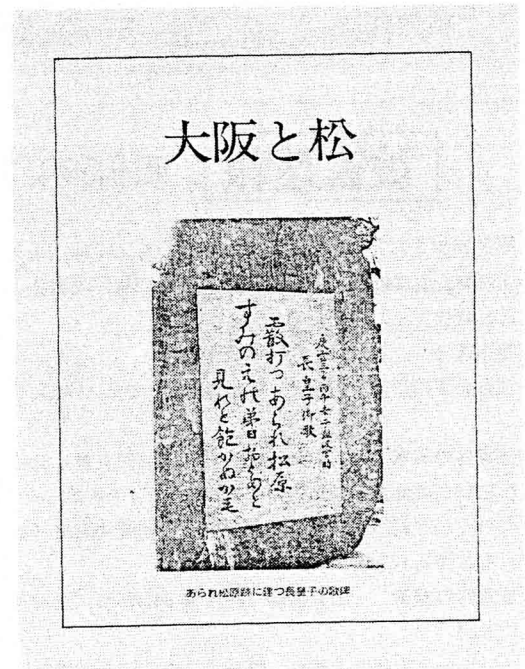 大阪と松
慶雲三年丙午幸于難波宮時
長皇子御歌
霰打つあられ松原
すみのえの弟日娘と
見れど飽かぬかも
あられ松原跡に建つ長皇子の歌碑